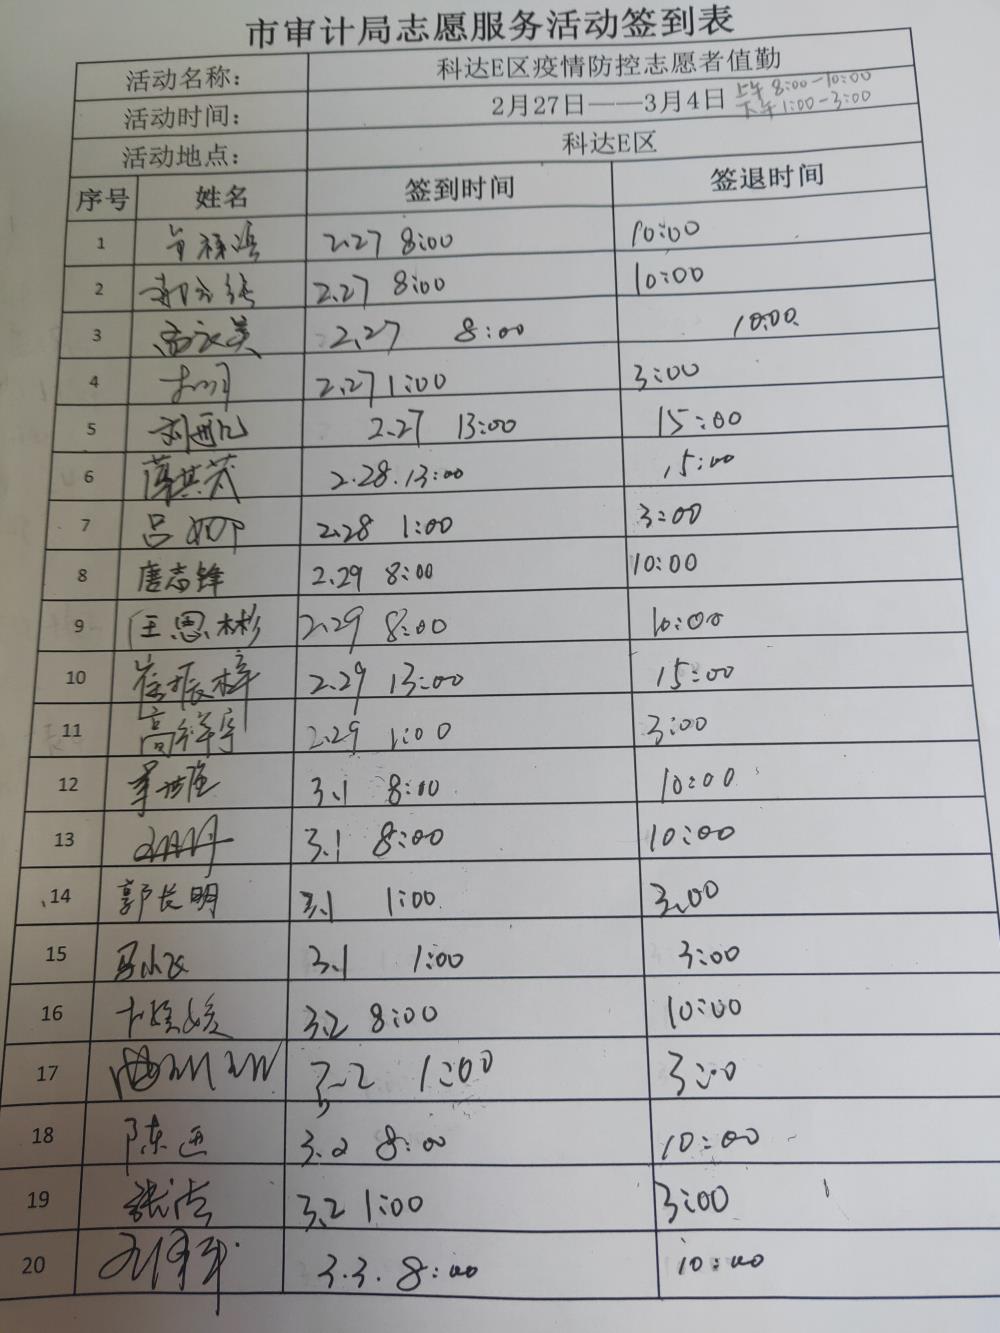 市审计局志愿服务活动签到表
活动名称: 科达E区疫情防控志愿者值勤
活动时间: 2月27日——3月4日 上午 8:00-10:00
下午 1:00-3:00
活动地点: 科达E区
序号 姓名 签到时间 签退时间
1 2.27 8:00 10:00
2 2.27 8:00 10:00
3 2.27 8:00 10:00
4 2.27 1:00 3:00
5 2.27 13:00 15:00
6 薛其茂 2.28.13:00 15:00
7 吕 2.28 1:00 3:00
8 唐志锋 2.29 8:00 10:00
9 王思彬 2.29 8:00 10:00
10 崔振梓 2.29 13:00 15:00
11 高维宇 2.29 1:00 3:00
12 3.1 8:00 10:00
13 3.1 8:00 10:00
14 郭长明 3.1 1:00 3:00
15 马小飞 3.1 1:00 3:00
16 3.2 8:00 10:00
17 3.2 1:00 3:00
18 陈 3.2 8:00 10:00
19 张 3.2 1:00 3:00
20 3.3. 8:00 10:00